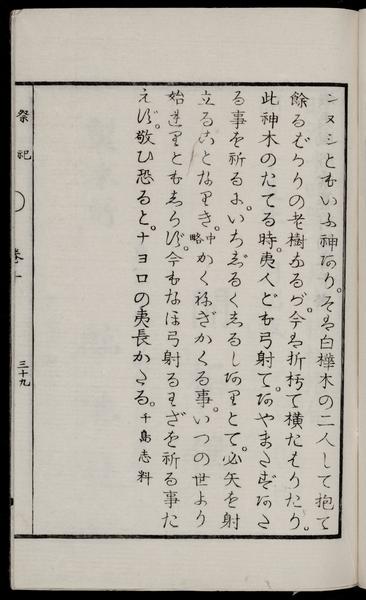 ンヌシともいふ神あり。そは白樺木の二人して抱て
餘るばかりの老樹なるが。今は折朽て横たはりたり。
此神木のたてる時。夷人ども弓射て。あやまたずあた
る事を祈るに。いちじるくしるしありとて。必矢を射
立ることなりき。中略かくねぎかくる事。いつの世より
始まりともしらず。今もなほ弓射るわざを祈る事た
えず。敬ひ恐ると。ナヨロの夷長かたる。千島志料
祭祀
卷十
三十九